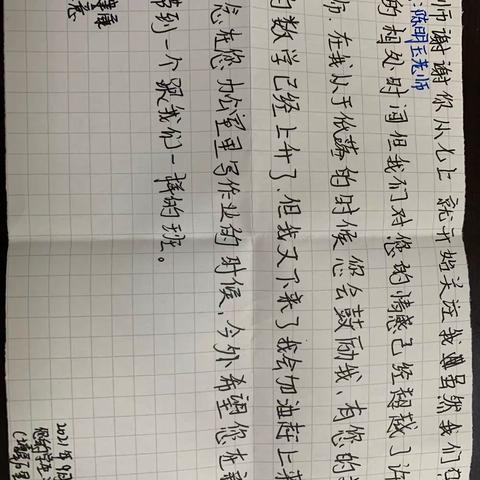 师谢谢你从七上就开始关注我 虽然我们在
陈明玉老师
的相处时间但我们对您的情感已经超越了许
师.在我从于低落的时候您会鼓励我、有您的
的数学已经上升了、但我又下来了我会加油赶上来
您在您办公室里写作业的时候、今外希望您在新
带到一个跟我们一样的班。
健康
意
2021年9月
您的学生